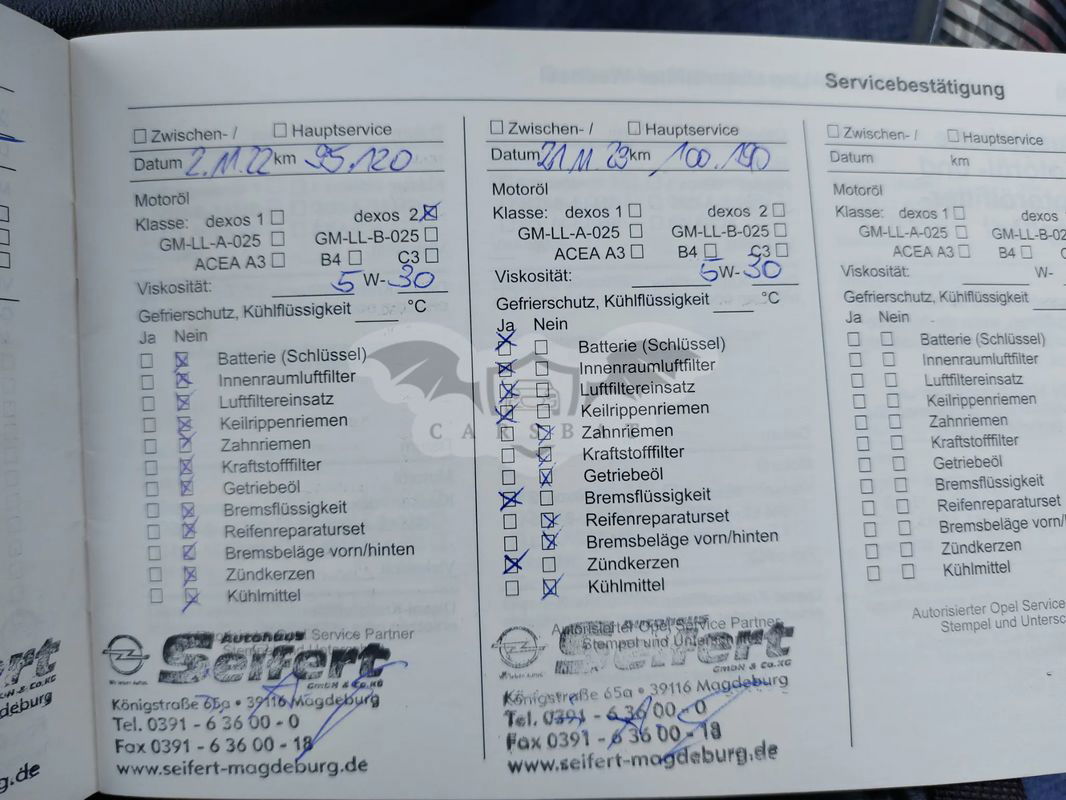 Servicebestätigung
☐ Zwischen- / ☐ Hauptservice
Datum 2.11.22 km 95.120
Motoröl
Klasse: dexos 1 ☐ dexos 2 ☒
GM-LL-A-025 ☐ GM-LL-B-025 ☐
ACEA A3 ☐ B4 ☐ C3 ☐
Viskosität: 5 W- 30
Gefrierschutz, Kühlflüssigkeit ____ °C
Ja Nein
☐ ☒ Batterie (Schlüssel)
☐ ☒ Innenraumluftfilter
☐ ☒ Luftfiltereinsatz
☐ ☒ Keilrippenriemen
☐ ☒ Zahnriemen
☐ ☒ Kraftstofffilter
☐ ☒ Getriebeöl
☐ ☒ Bremsflüssigkeit
☐ ☒ Reifenreparaturset
☐ ☒ Bremsbeläge vorn/hinten
☐ ☒ Zündkerzen
☐ ☒ Kühlmittel
Service Partner
Autohaus
Seifert
GmbH & Co.KG
Königstraße 65a • 39116 Magdeburg
Tel. 0391 - 6 36 00 - 0
Fax 0391 - 6 36 00 - 18
www.seifert-magdeburg.de
☐ Zwischen- / ☐ Hauptservice
Datum 21.11.23 km 100.190
Motoröl
Klasse: dexos 1 ☐ dexos 2 ☐
GM-LL-A-025 ☐ GM-LL-B-025 ☐
ACEA A3 ☐ B4 ☐ C3 ☐
Viskosität: 5 W- 30
Gefrierschutz, Kühlflüssigkeit ____ °C
Ja Nein
☒ ☐ Batterie (Schlüssel)
☒ ☐ Innenraumluftfilter
☒ ☐ Luftfiltereinsatz
☒ ☐ Keilrippenriemen
☐ ☒ Zahnriemen
☐ ☒ Kraftstofffilter
☐ ☒ Getriebeöl
☒ ☐ Bremsflüssigkeit
☐ ☒ Reifenreparaturset
☐ ☒ Bremsbeläge vorn/hinten
☒ ☐ Zündkerzen
☐ ☒ Kühlmittel
Autorisierter Opel Service Partner
Stempel und Unters
Seifert
GmbH & Co.KG
Königstraße 65a • 39116 Magdeburg
Tel. 0391 - 6 36 00 - 0
Fax 0391 - 6 36 00 - 18
www.seifert-magdeburg.de
☐ Zwischen- / ☐ Hauptservice
Datum km
Motoröl
Klasse: dexos 1 ☐ dexos
GM-LL-A-025 ☐ GM-LL-B-02
ACEA A3 ☐ B4 ☐
Viskosität: ____ W-
Gefrierschutz, Kühlflüssigkeit
Ja Nein
☐ ☐ Batterie (Schlüssel)
☐ ☐ Innenraumluftfilter
☐ ☐ Luftfiltereinsatz
☐ ☐ Keilrippenriemen
☐ ☐ Zahnriemen
☐ ☐ Kraftstofffilter
☐ ☐ Getriebeöl
☐ ☐ Bremsflüssigkeit
☐ ☐ Reifenreparaturset
☐ ☐ Bremsbeläge vorn/
☐ ☐ Zündkerzen
☐ ☐ Kühlmittel
Autorisierter Opel Service
Stempel und Untersc
CARSBAT